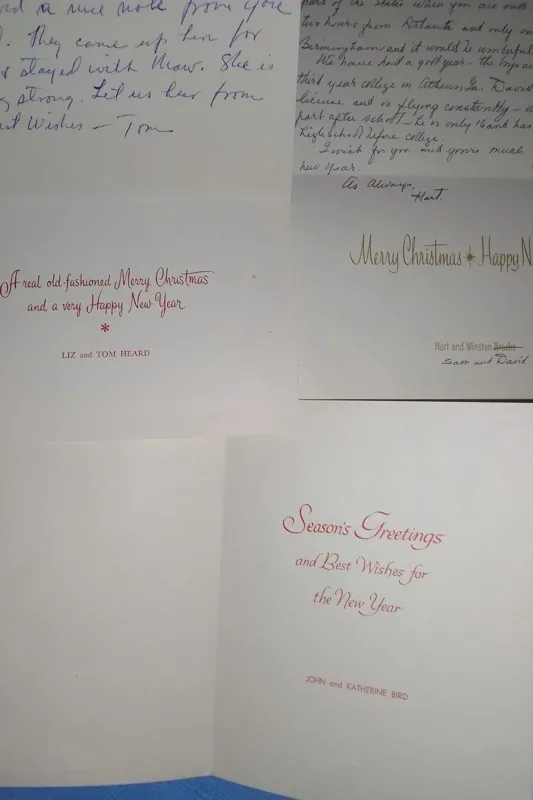 a nice note from you
They came up here for
stayed with Maw. She is
strong. Let us hear from
Wishes — Tom
A real old-fashioned Merry Christmas
and a very Happy New Year
*
LIZ and TOM HEARD
of the States when you are over
two hours from Atlanta and only
Birmingham and it would be wonderful
We have had a good year - the boys
third year college in Athens, Ga. David
license and is flying constantly -
part after school - he is only 16 and has
high school before college.
I wish for you and yours much
new year.
As Always,
Hart.
Merry Christmas * Happy N
Hart and Winston Brooke
Sam and David
Season's Greetings
and Best Wishes for
the New Year
JOHN and KATHERINE BIRD